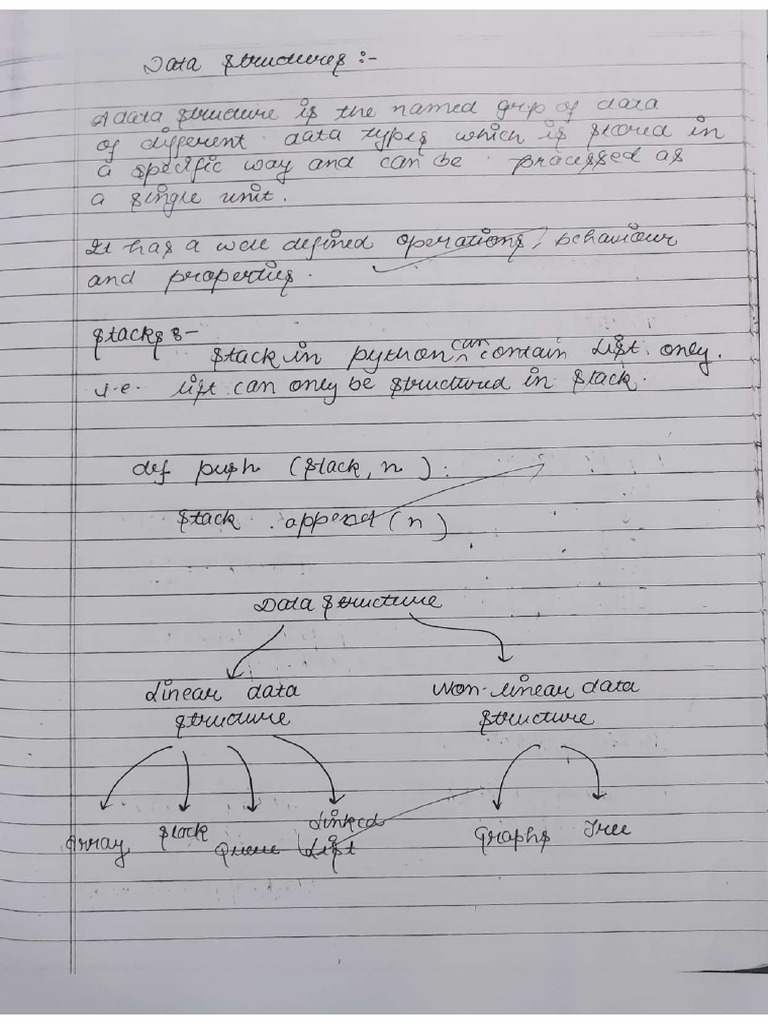 Data structures :-
A data structure is the named grp of data
of different data types which is stored in
a specific way and can be processed as
a single unit.
It has a well defined operations, behaviour
and properties.
Stacks :-
Stack in python can contain List only.
i.e. list can only be structured in stack.
def push (stack, n ) :
stack . append (n)
Data structure
Linear data structure
Non-linear data structure
Array
Stack
Queue
Linked List
Graphs
Tree